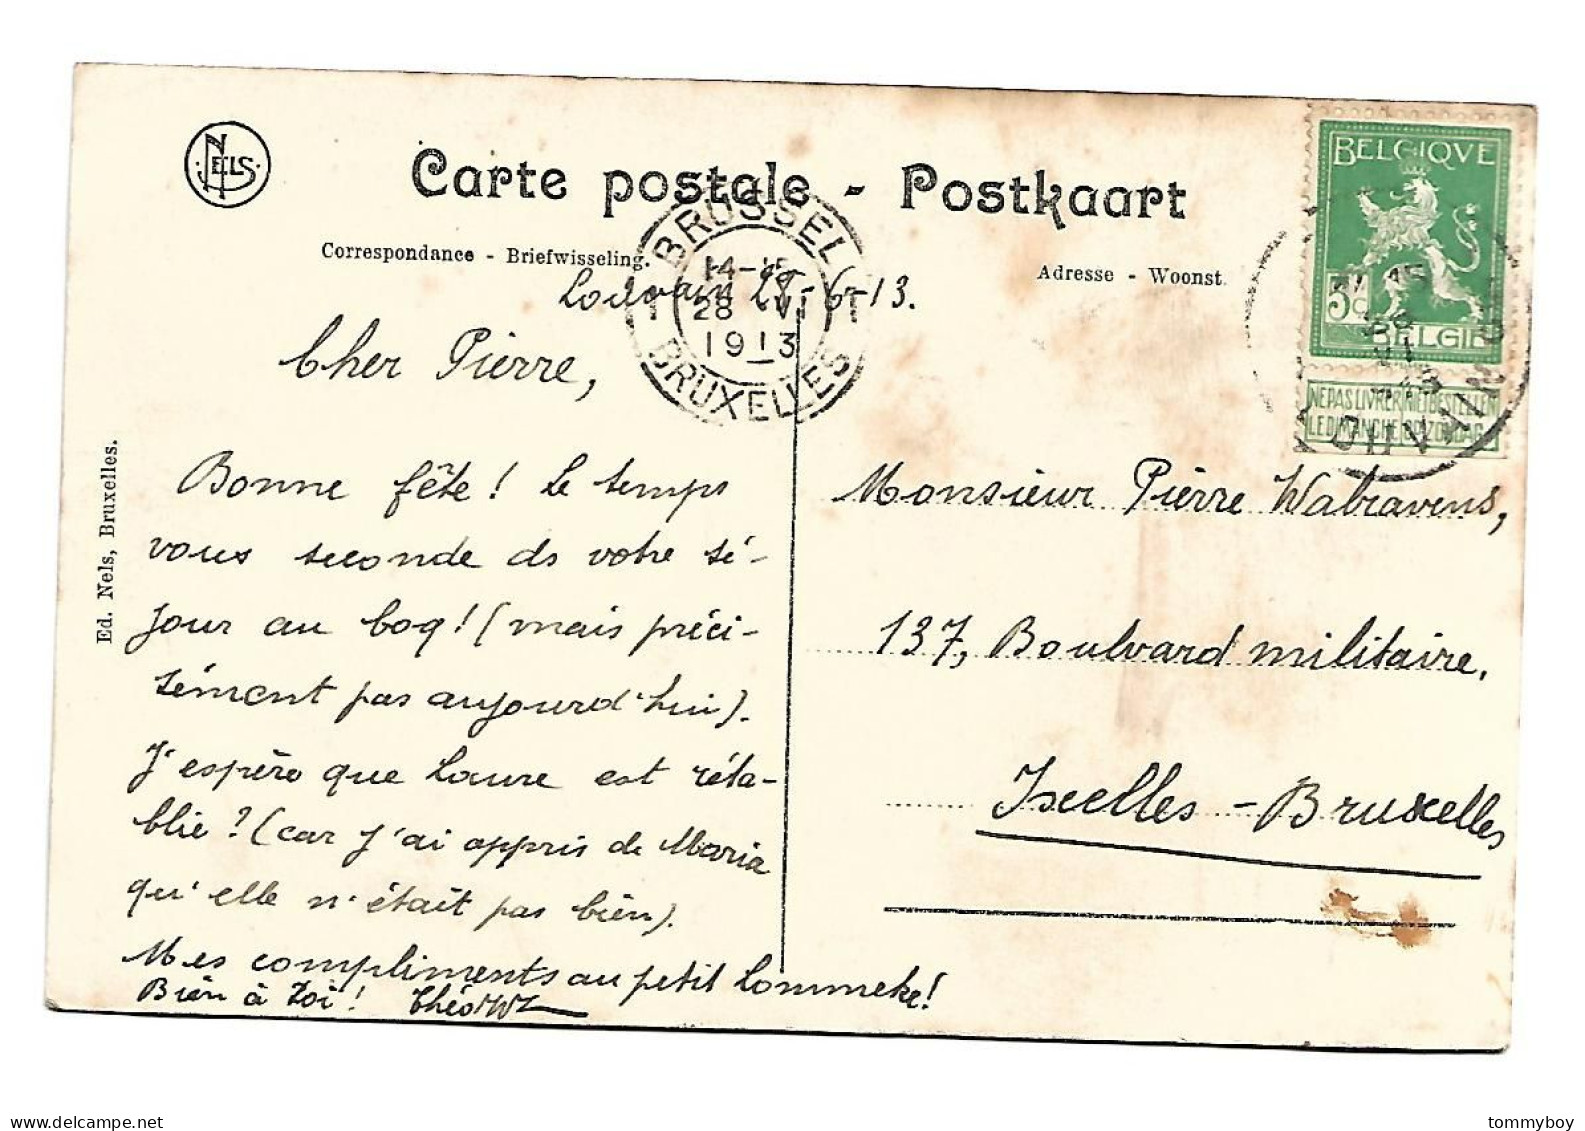 NELS
Carte postale - Postkaart
Correspondance - Briefwisseling.
Adresse - Woonst.
BELGIQVE
5c
BELGIË
NE PAS LIVRER NIET BESTELLEN
LE DIMANCHE OP ZONDAG
BRUSSEL
14-15
1 28 VI 1
1913
BRUXELLES
Louvain 28-6-13.
Cher Pierre,
Bonne fête! Le temps
vous seconde ds votre sé-
jour au boq! (mais préci-
sément pas aujourd'hui).
J'espère que Laure est réta-
blie? (car j'ai appris de Maria
qu'elle n'était pas bien).
Mes compliments au petit Lommeke!
Bien à toi! Théo
Monsieur Pierre Walravens,
137, Boulvard militaire,
Ixelles - Bruxelles
Ed. Nels, Bruxelles.
tommyboy